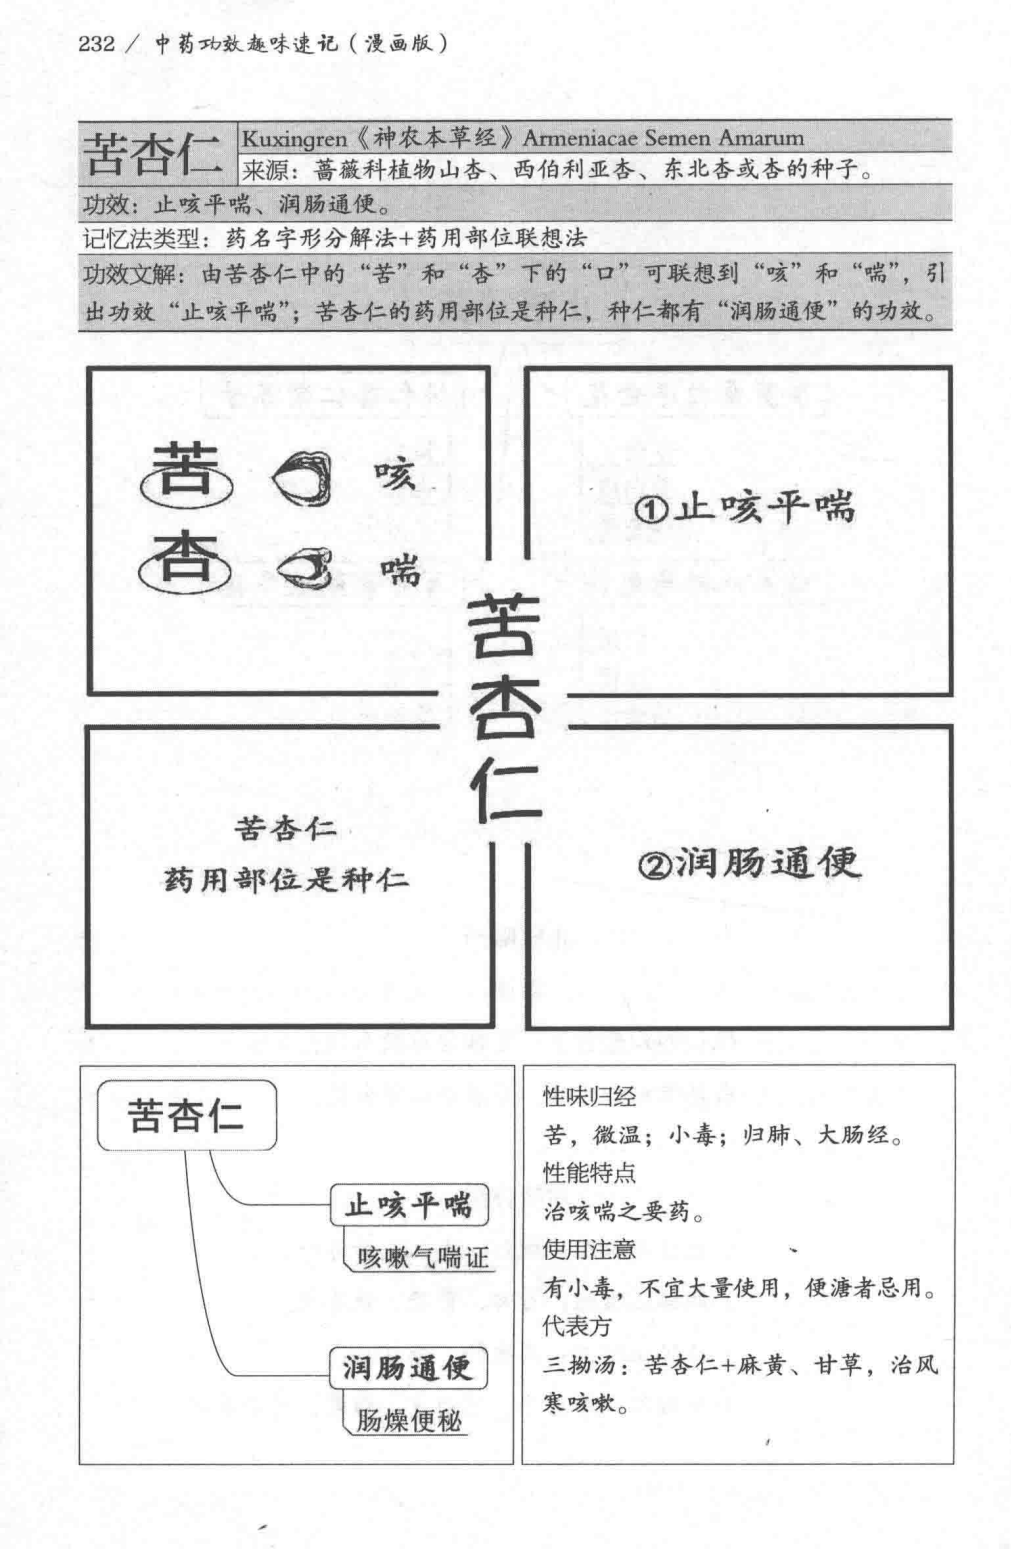 232 / 中药功效趣味速记（漫画版）
苦杏仁
Kuxingren《神农本草经》Armeniacae Semen Amarum
来源：蔷薇科植物山杏、西伯利亚杏、东北杏或杏的种子。
功效：止咳平喘、润肠通便。
记忆法类型：药名字形分解法+药用部位联想法
功效文解：由苦杏仁中的“苦”和“杏”下的“口”可联想到“咳”和“喘”，引
出功效“止咳平喘”；苦杏仁的药用部位是种仁，种仁都有“润肠通便”的功效。
苦 咳
杏 喘
①止咳平喘
苦杏仁
苦杏仁
药用部位是种仁
②润肠通便
苦杏仁
止咳平喘
咳嗽气喘证
润肠通便
肠燥便秘
性味归经
苦，微温；小毒；归肺、大肠经。
性能特点
治咳喘之要药。
使用注意
有小毒，不宜大量使用，便溏者忌用。
代表方
三拗汤：苦杏仁+麻黄、甘草，治风
寒咳嗽。